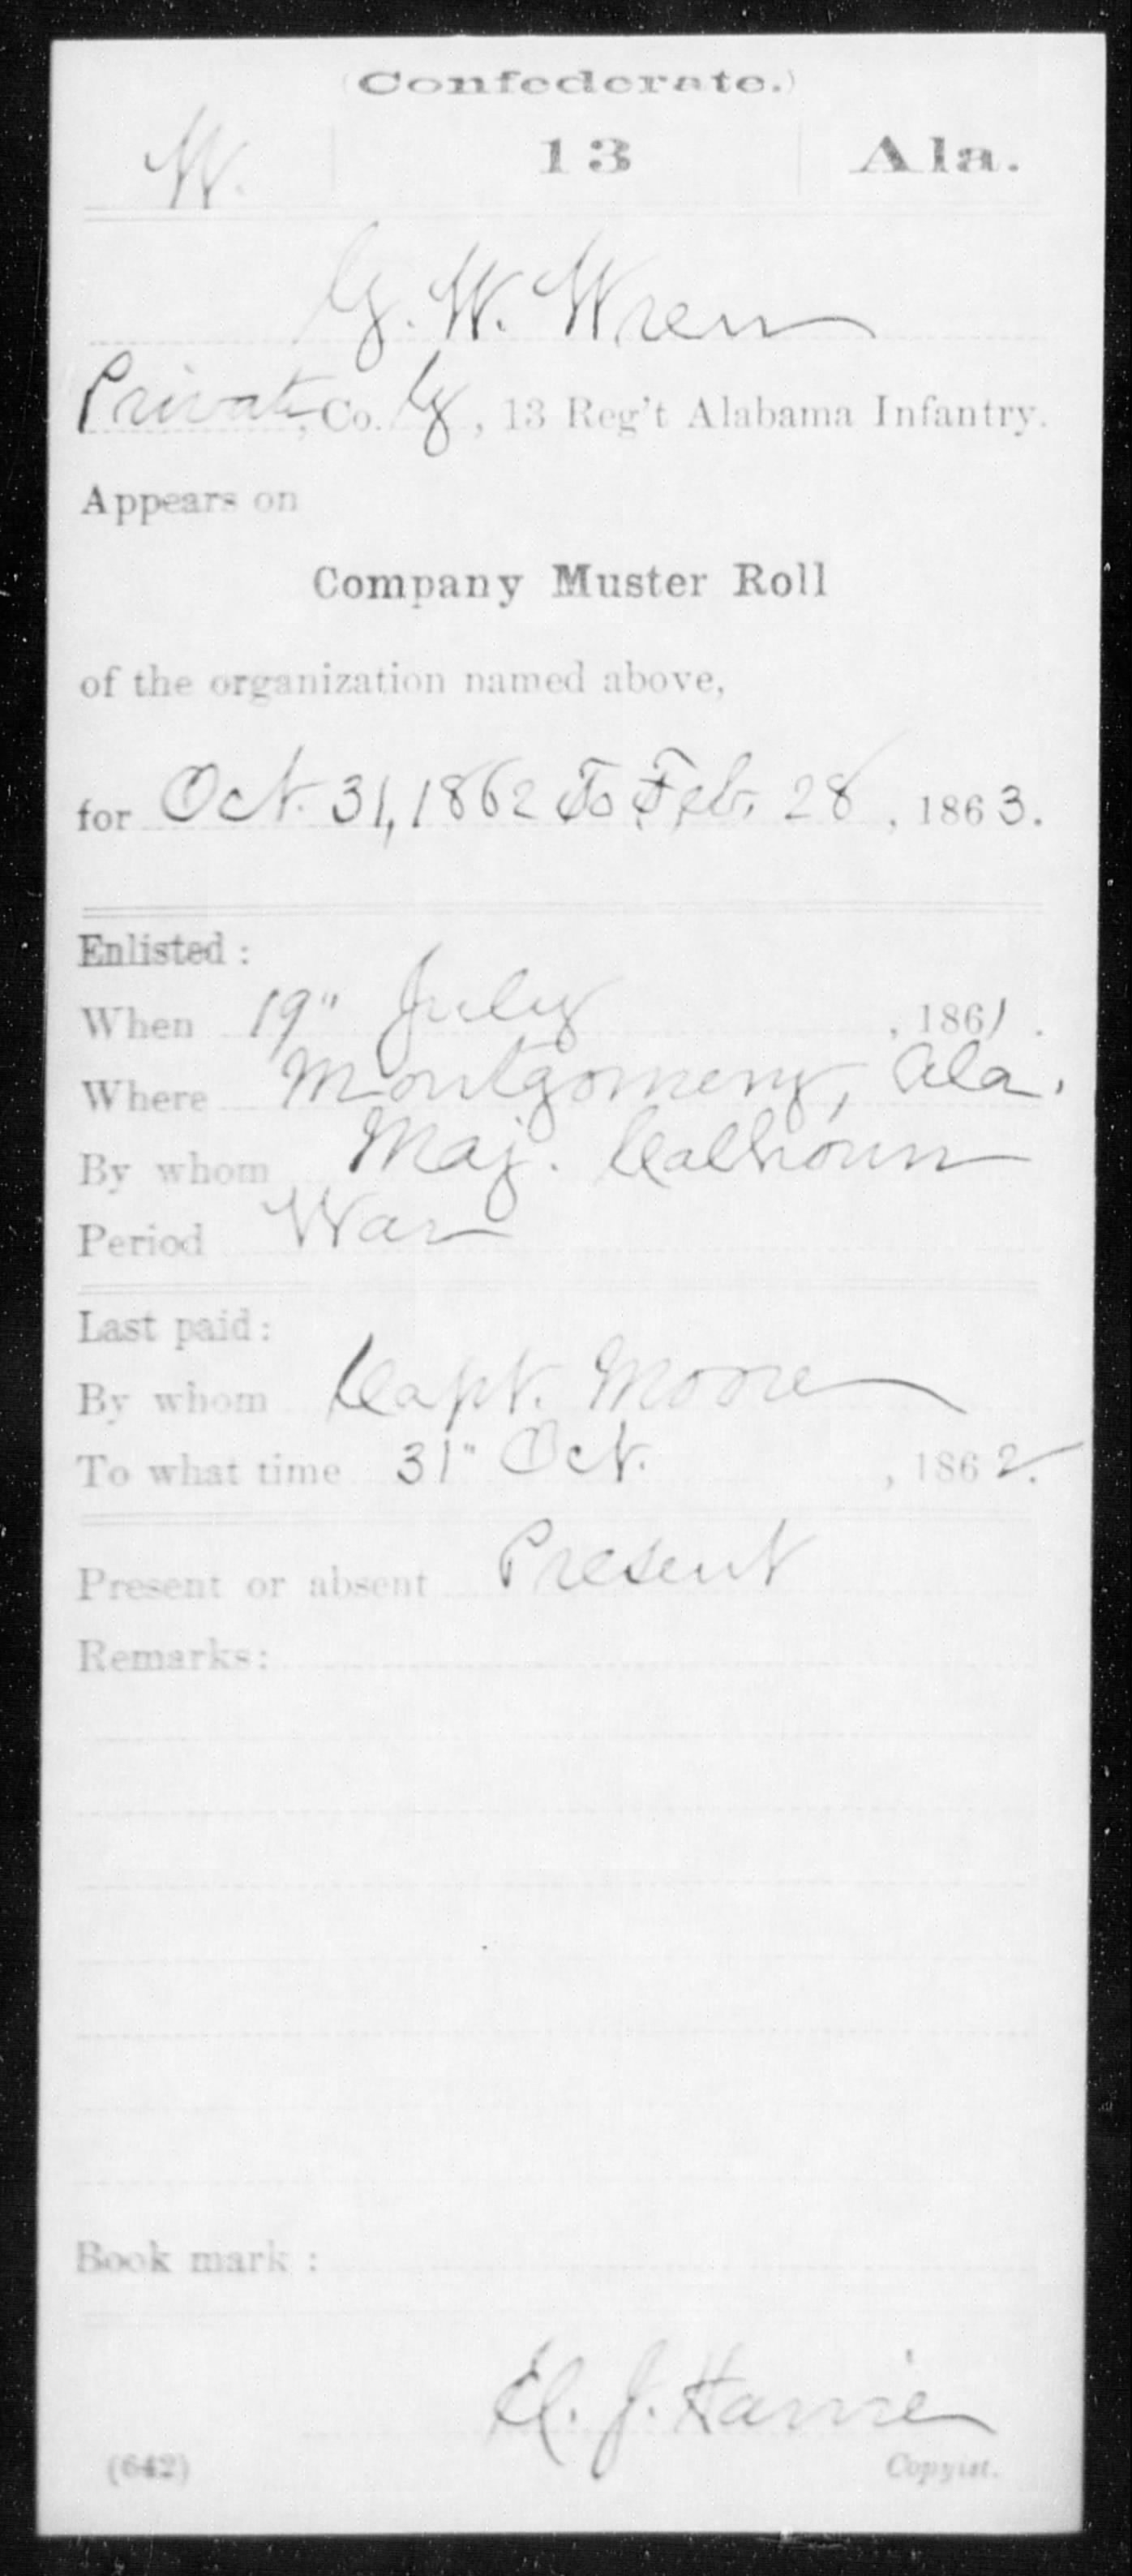 (Confederate.)
W. 13 Ala.
G. W. Wren
Private, Co. G, 13 Reg't Alabama Infantry.
Appears on
Company Muster Roll
of the organization named above,
for Oct. 31, 1862 To Feb. 28, 1863.
Enlisted:
When 19" July, 1861.
Where Montgomery, Ala.
By whom Maj. Calhoun
Period War
Last paid:
By whom Capt. Moore
To what time 31" Oct., 1862.
Present or absent Present
Remarks:
Book mark:
J.
(642) Copyist.